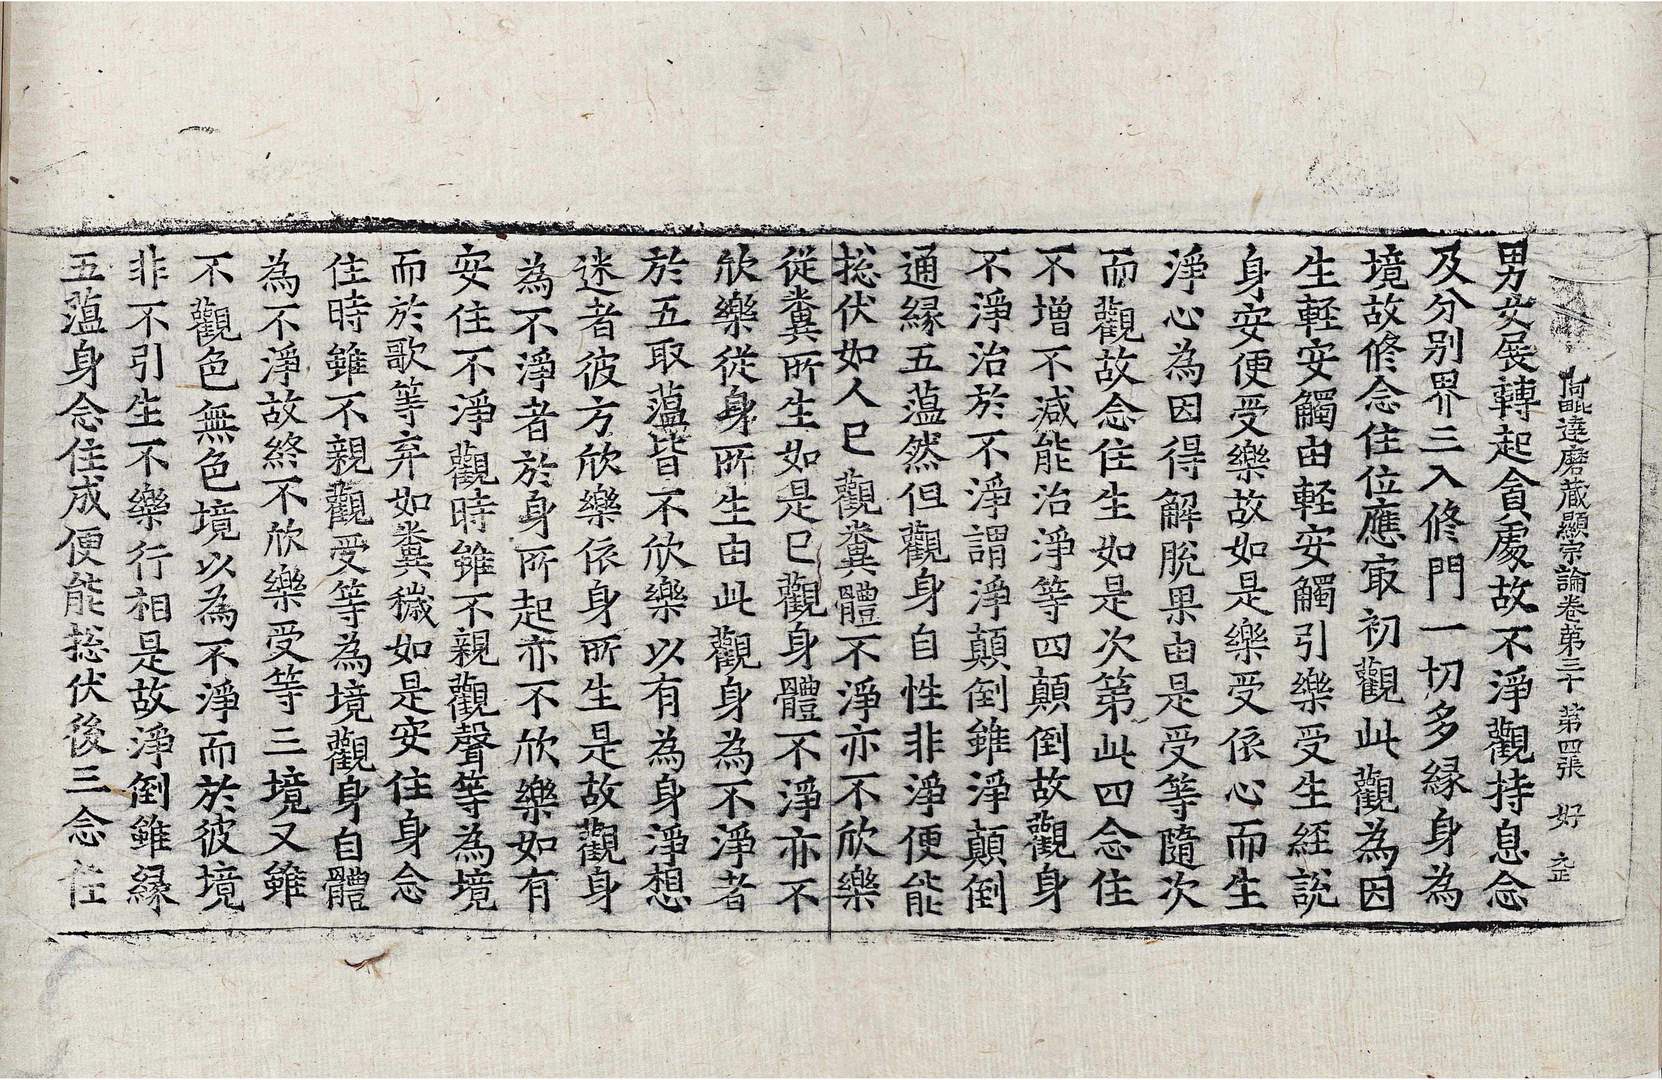 阿毗達磨藏顯宗論卷第三十 第四張 好
男女展轉起貪處故不淨觀持息念
及分別界三入修門一切多緣身為
境故修念住位應㝡初觀此觀為因
生輕安觸由輕安觸引樂受生經說
身安便受樂故如是樂受依心而生
淨心為因得解脫果由是受等隨次
而觀故念住生如是次第此四念住
不增不減能治淨等四顛倒故觀身
不淨治於不淨謂淨顛倒雖淨顛倒
通緣五蘊然但觀身自性非淨便能
捴伏如人巳觀糞體不淨亦不欣樂
從糞所生如是巳觀身體不淨亦不
欣樂從身所生由此觀身為不淨者
於五取蘊皆不欣樂以有為身淨想
迷者彼方欣樂依身所生是故觀身
為不淨者於身所起亦不欣樂如有
安住不淨觀時雖不親觀聲等為境
而於歌等弃如糞穢如是安住身念
住時雖不親觀受等為境觀身自體
為不淨故終不欣樂受等三境又雖
不觀色無色境以為不淨而於彼境
非不引生不樂行相是故淨倒雖緣
五蘊身念住成便能捴伏後三念住